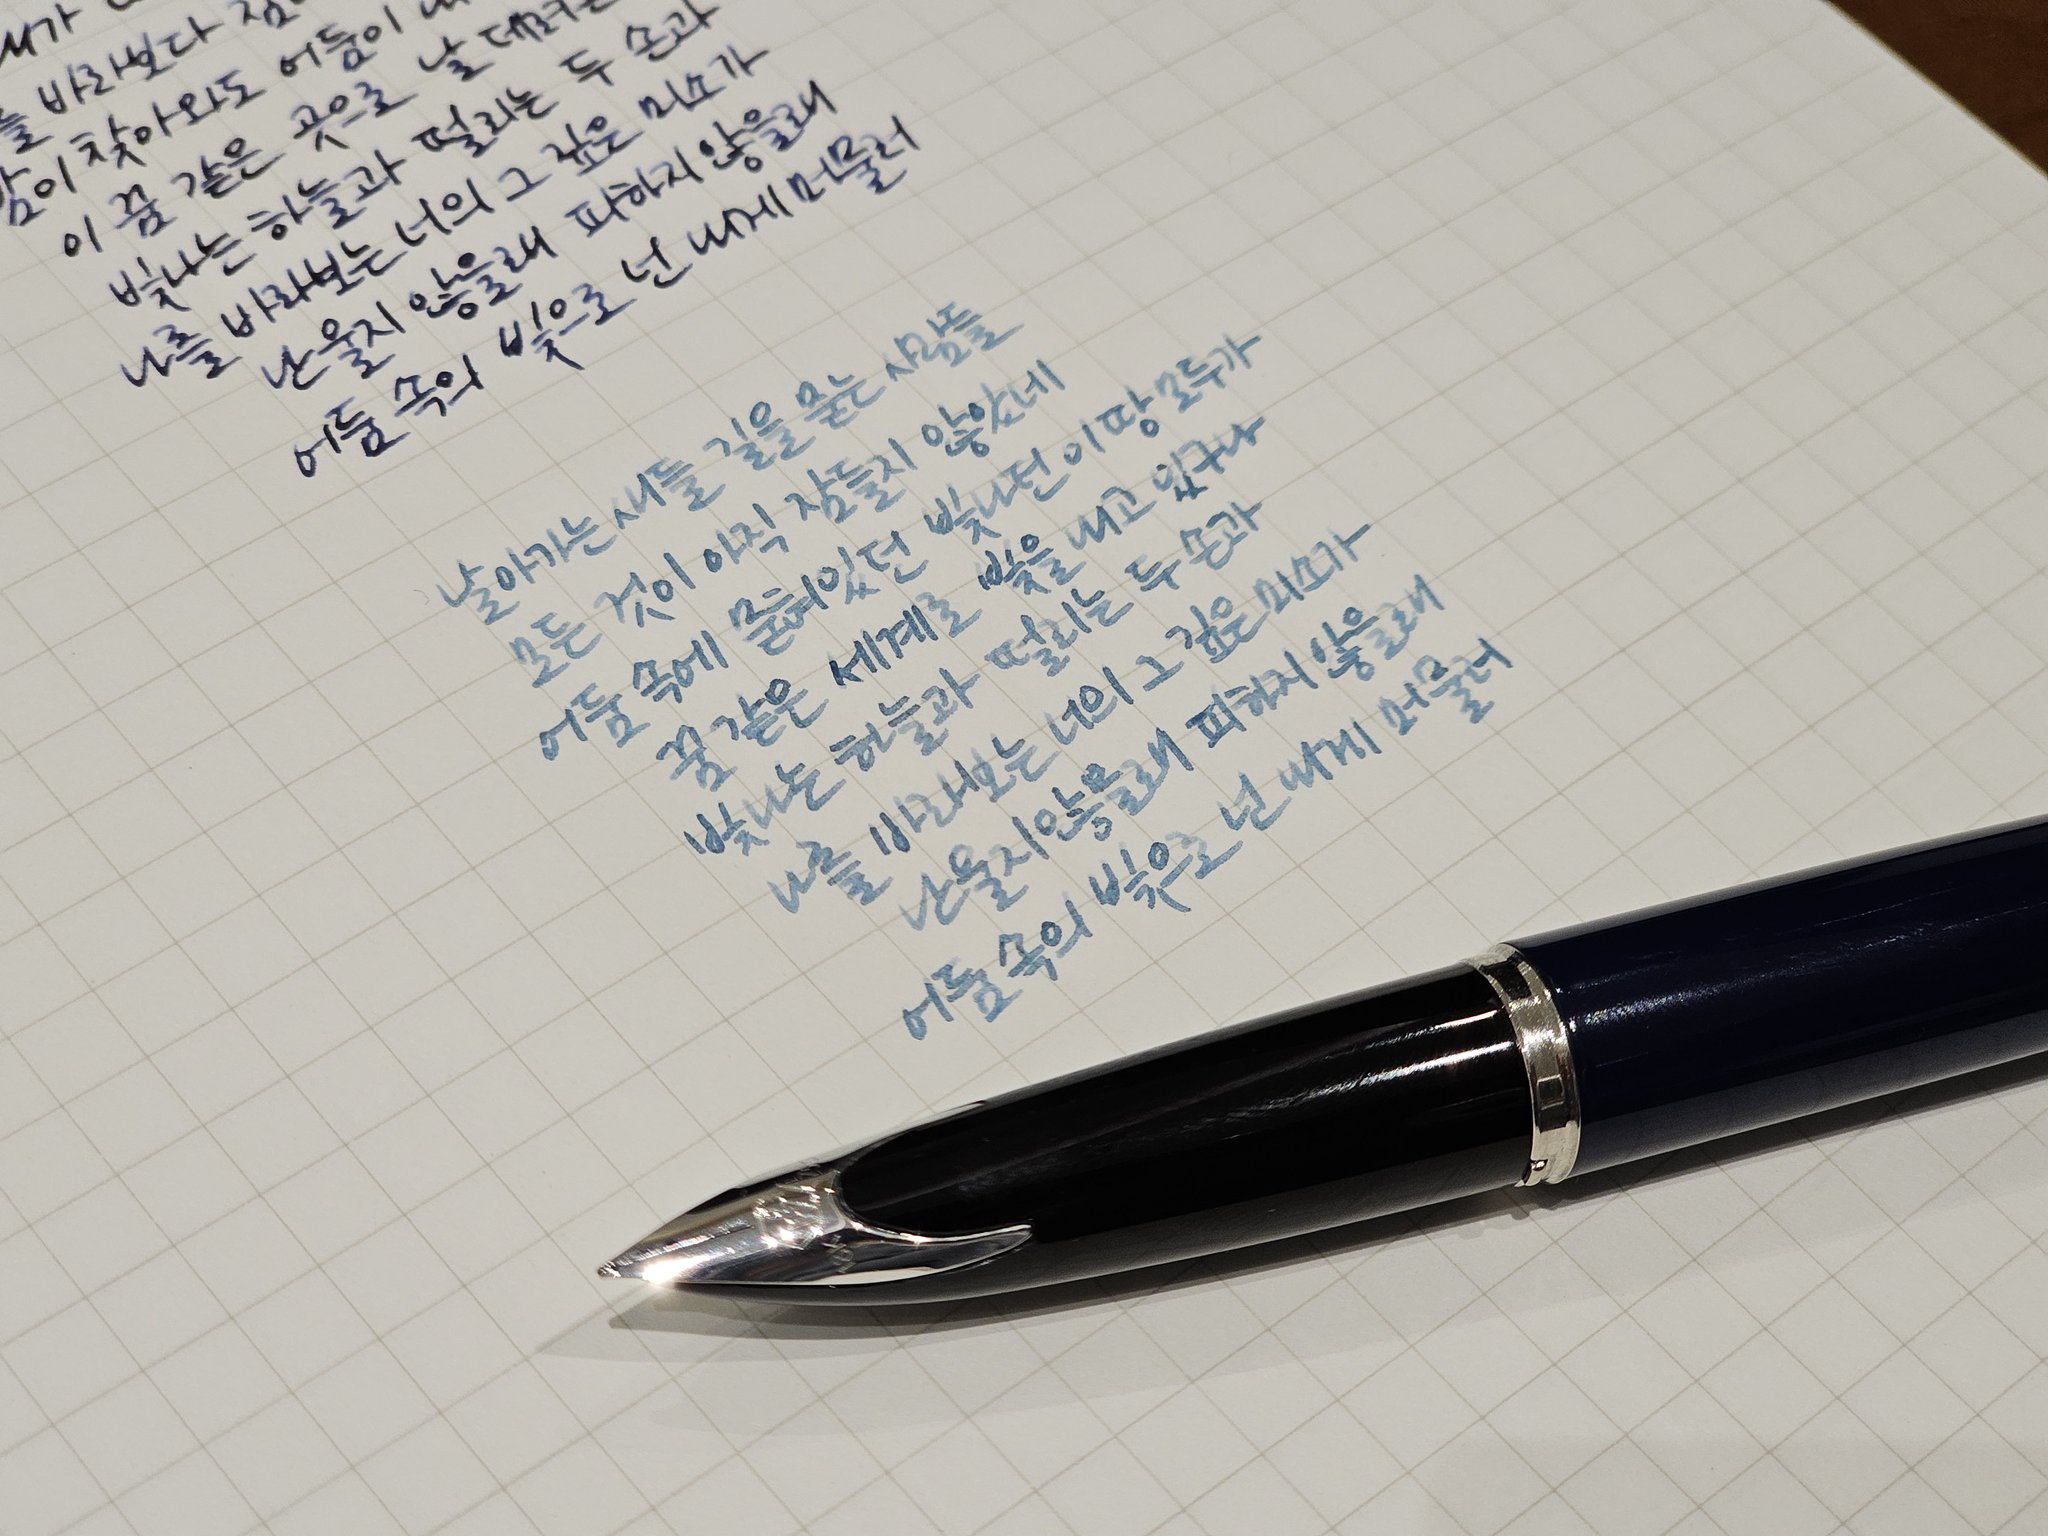 내가
를 바라보다 잠
밤이 찾아와도 어둠이 내
이 꿈 같은 곳으로 날 데려는
빛나는 하늘과 떨리는 두 손과
나를 바라보는 너의 그 깊은 미소가
난 울지 않을래 피하지 않을래
어둠 속의 빛으로 넌 내게 머물러
날아가는 새들 길을 묻는 사람들
모든 것이 아직 잠들지 않았네
어둠 속에 묻혀있던 빛나던 이 땅 모두가
꿈 같은 세계로 빛을 내고 있구나
빛나는 하늘과 떨리는 두 손과
나를 바라보는 너의 그 깊은 미소가
난 울지 않을래 피하지 않을래
어둠 속의 빛으로 넌 내게 머물러